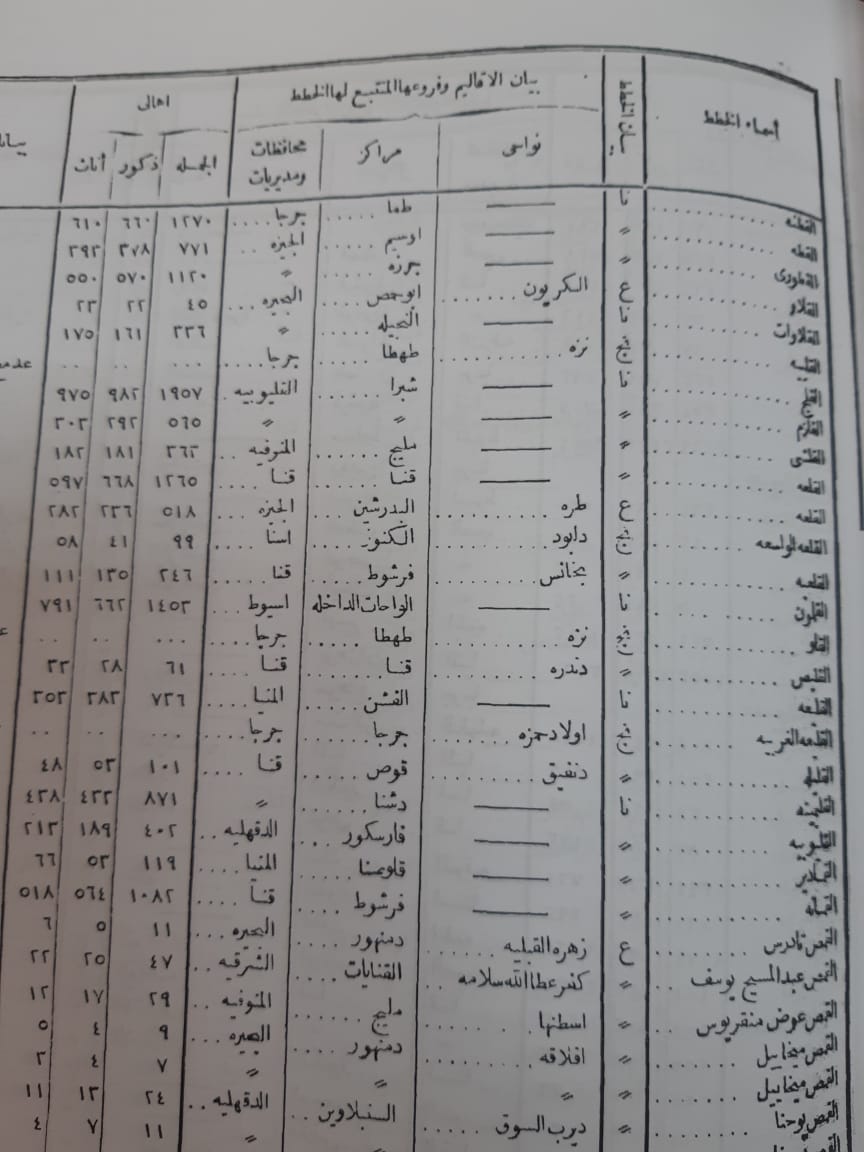 أسماء الخطط بيان الخطط بيان الاقاليم وفروعها المتتبع لها الخطط اهالى
نواحى مراكز محافظات ومديريات الجمله ذكور أناث
القطنه نا طما جرجا ١٢٧٠ ٦٦٠ ٦١٠
القطه 〃 اوسيم الجيزه ٧٧١ ٣٧٨ ٣٩٣
〃 جرزه 〃 ١١٢٠ ٥٧٠ ٥٥٠
ع الكريون ابوحمص البحيره ٤٥ ٢٢ ٢٣
القلاوات نا النجيله 〃 ٣٣٦ ١٦١ ١٧٥
نزه طهطا جرجا ... .. ..
نا شبرا القليوبيه ١٩٥٧ ٩٨٢ ٩٧٥
〃 〃 〃 ٥٦٥ ٢٩٢ ٢٠٣
〃 مليج المنوفيه ٣٦٣ ١٨١ ١٨٢
القلعه 〃 قنا قنا ١٢٦٥ ٦٦٨ ٥٩٧
القلعه ع طره البدرشين الجيزه ٥١٨ ٢٣٦ ٢٨٢
القلعه الواسعه دابود الكنوز اسنا ٩٩ ٤١ ٥٨
القلعه 〃 بخانس فرشوط قنا ٢٤٦ ١٣٥ ١١١
القلمون نا الواحات الداخله اسيوط ١٤٥٣ ٦٦٢ ٧٩١
نزه طهطا جرجا ... .. ..
〃 دندره قنا قنا ٦١ ٢٨ ٣٣
القلعه نا الفشن المنيا ٧٣٦ ٣٨٣ ٣٥٣
القلعه الغربيه اولاد حمزه جرجا جرجا ... .. ..
〃 دنفيق قوص قنا ١٠١ ٥٣ ٤٨
نا دشنا 〃 ٨٧١ ٤٣٣ ٤٣٨
القليوبيه 〃 فارسكور الدقهليه ٤٠٢ ١٨٩ ٢١٣
〃 قلوصنا المنيا ١١٩ ٥٣ ٦٦
〃 فرشوط قنا ١٠٨٢ ٥٦٤ ٥١٨
القمص تادرس ع زهره القبليه دمنهور البحيره ١١ ٥ ٦
القمص عبد المسيح يوسف 〃 كفر عطا الله سلامه القنايات الشرقيه ٤٧ ٢٥ ٢٢
القمص عوض منقريوس 〃 اسطنها مليج المنوفيه ٢٩ ١٧ ١٢
القمص ميخاييل 〃 افلاقه دمنهور البحيره ٩ ٤ ٥
القمص ميخاييل 〃 〃 〃 〃 ٧ ٤ ٣
القمص يوحنا 〃 ديرب السوق السنبلاوين الدقهليه ٢٤ ١٣ ١١
〃 ١١ ٧ ٤